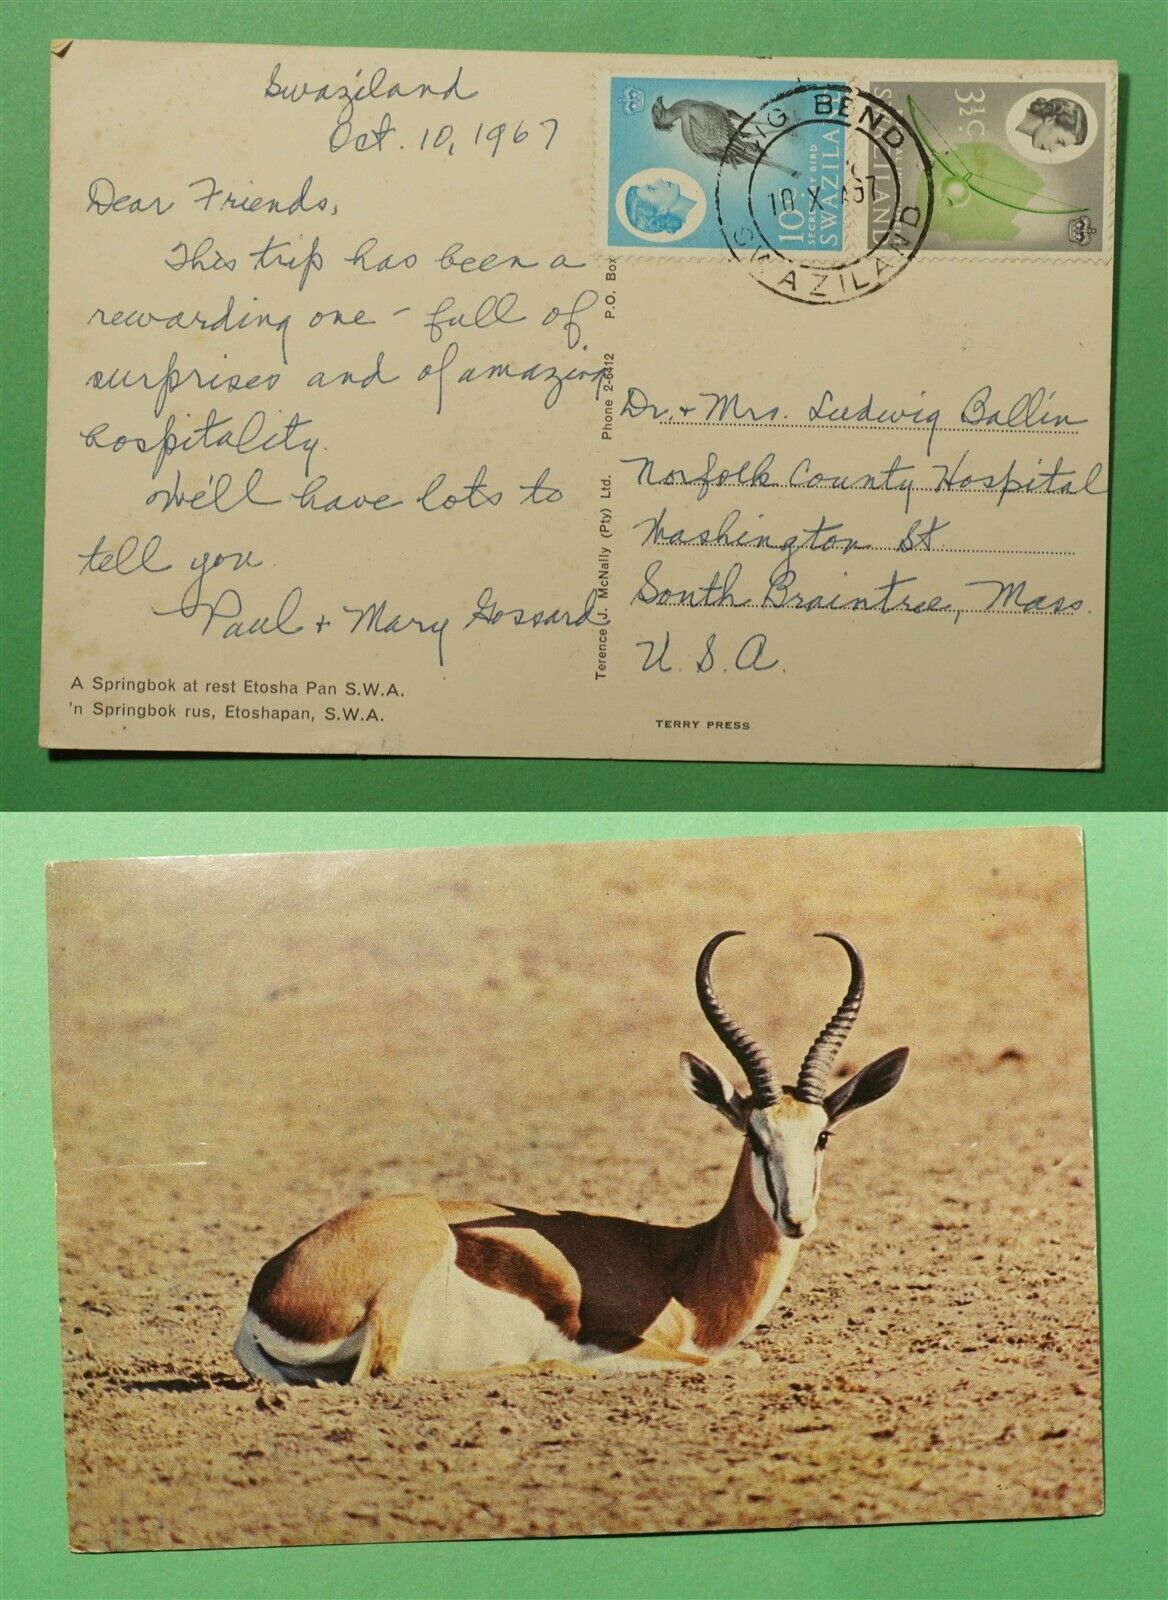 Swaziland
Oct. 10, 1967
Dear Friends,
This trip has been a
rewarding one – full of
surprises and of amazing
hospitality.
We'll have lots to
tell you.
Paul + Mary Gossard
A Springbok at rest Etosha Pan S.W.A.
'n Springbok rus, Etoshapan, S.W.A.
Terence J. McNally (Pty) Ltd. Phone 2-6412 P.O. Box
10c
SECRETARY BIRD
SWAZILA
3½c
ZILAND
BIG BEND
10 X 67
SWAZILAND
Dr. + Mrs. Ludwig Ballin
Norfolk County Hospital
Washington St.
South Braintree, Mass.
U.S.A.
TERRY PRESS